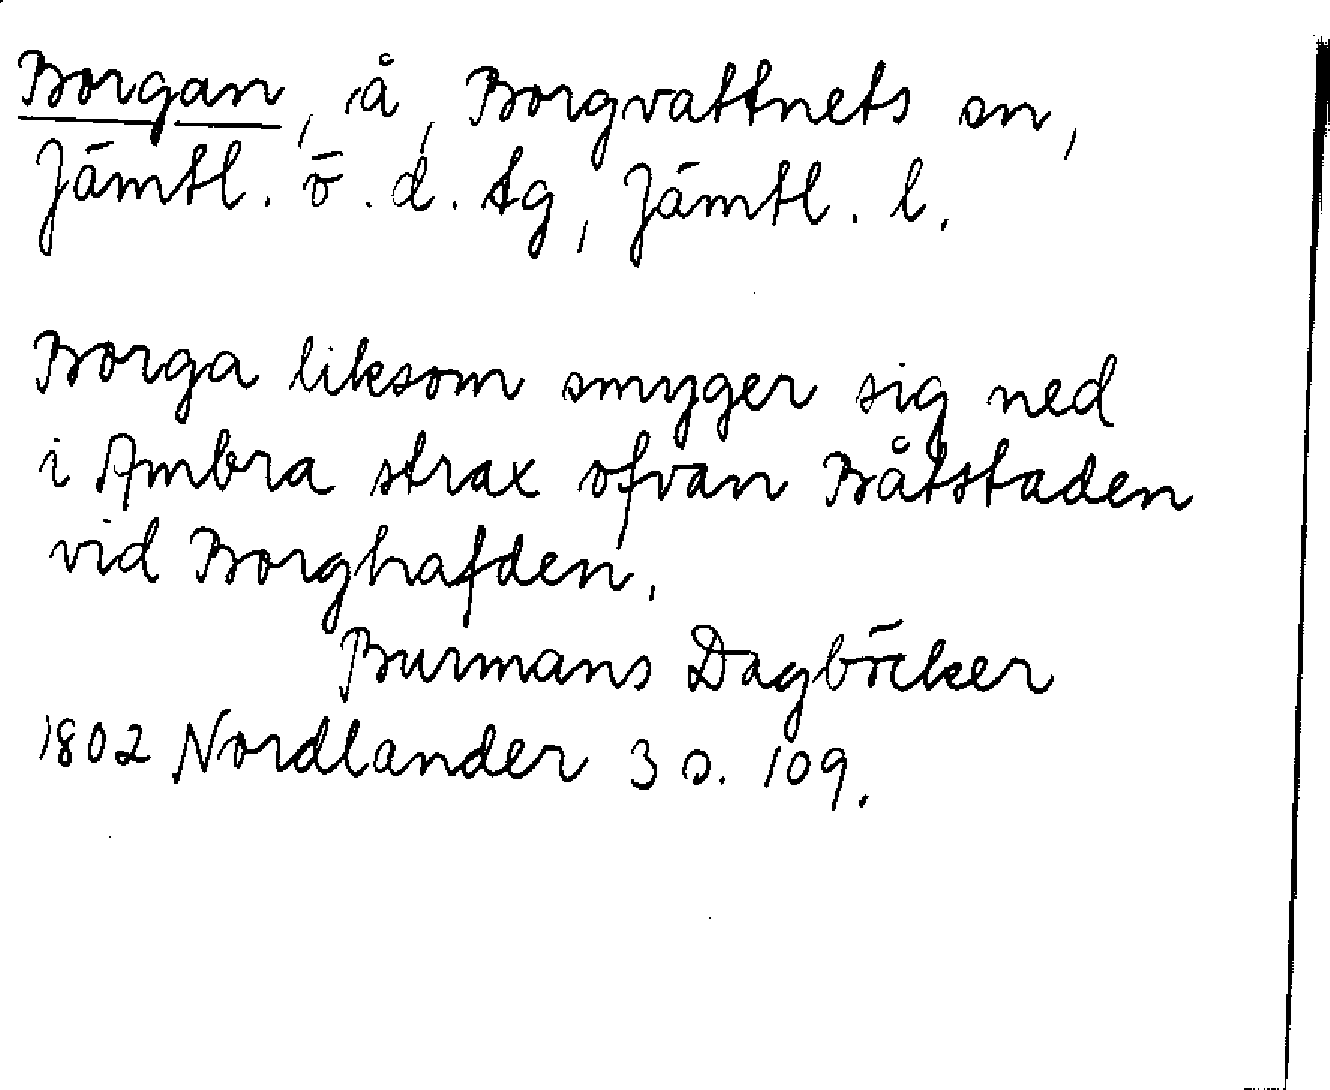 Borgan, å, Borgvattnets sn,
Jämtl. ö. d. tg, Jämtl. l.
Borga liksom smyger sig ned
i Ambra strax ofvan Båtstaden
vid Borghafden.
Burmans Dagböcker
1802 Nordlander 3 s. 109.